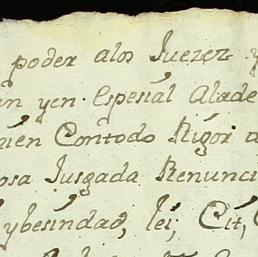 poder alos Juezez y
an yen Espesial Alade
uien Contodo Rigor a
osa Jusgada Renunci
ybesindad, lei, Cit,